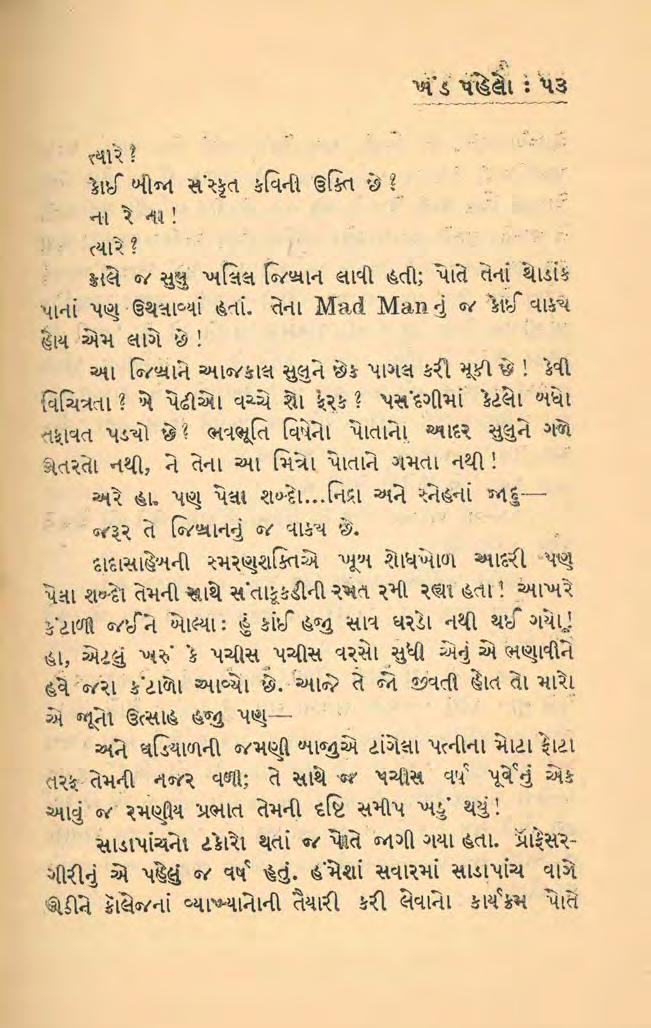 ખંડ પહેલો : ૫૩
ત્યારે ?
કોઈ બીજા સંસ્કૃત કવિની ઉક્તિ છે ?
ના રે ના !
ત્યારે ?
કાલે જ સુલુ ખલિલ જિબ્રાન લાવી હતી; પોતે તેનાં થોડાંક
પાનાં પણ ઉથલાવ્યાં હતાં. તેના Mad Manનું જ કોઈ વાક્ય
હોય એમ લાગે છે !
આ જિબ્રાને આજકાલ સુલુને છેક પાગલ કરી મૂકી છે ! કેવી
વિચિત્રતા ? બે પેઢીઓ વચ્ચે શો ફેરક ? પસંદગીમાં કેટલો બધો
તફાવત પડ્યો છે ? ભવભૂતિ વિષેનો પોતાનો આદર સુલુને ગળે
ઊતરતો નથી, ને તેના આ મિત્રો પોતાને ગમતા નથી !
અરે હા. પણ પેલા શબ્દો...નિદ્રા અને સ્નેહનાં જાદુ—
જરૂર તે જિબ્રાનનું જ વાક્ય છે.
દાદાસાહેબની સ્મરણશક્તિએ ખૂબ શોધખોળ આદરી પણ
પેલા શબ્દો તેમની સાથે સંતાકૂકડીની રમત રમી રહ્યા હતા ! આખરે
કંટાળી જઈને બોલ્યા : હું કાંઈ હજી સાવ ઘરડો નથી થઈ ગયો !
હા, એટલું ખરું કે પચીસ પચીસ વરસો સુધી એનું એ ભણાવીને
હવે જરા કંટાળો આવ્યો છે. આજે તે જો જીવતી હોત તો મારો
એ જૂનો ઉત્સાહ હજી પણ—
અને ઘડિયાળની જમણી બાજુએ ટાંગેલા પત્નીના મોટા ફોટા
તરફ તેમની નજર વળી; તે સાથે જ પચીસ વર્ષ પૂર્વેનું એક
આવું જ રમણીય પ્રભાત તેમની દૃષ્ટિ સમીપ ખડું થયું !
સાડાપાંચનો ટકોરો થતાં જ પોતે જાગી ગયા હતા. પ્રૉફેસર-
ગીરીનું એ પહેલું જ વર્ષ હતું. હંમેશાં સવારમાં સાડાપાંચ વાગે
ઊઠીને કૉલેજનાં વ્યાખ્યાનોની તૈયારી કરી લેવાનો કાર્યક્રમ પોતે